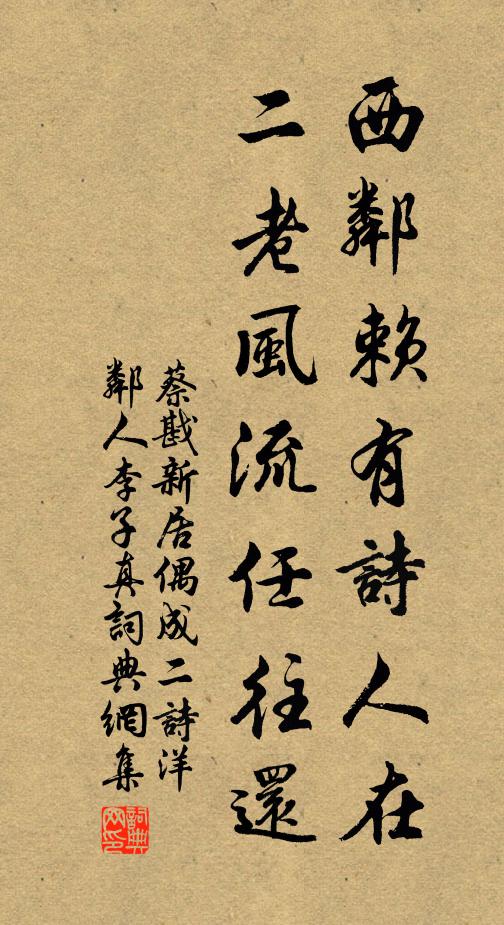 西鄰賴有詩人在
二老風流任往還
蔡戡新居偶成二詩洋
鄰人李子真詞典網集
詞典网印